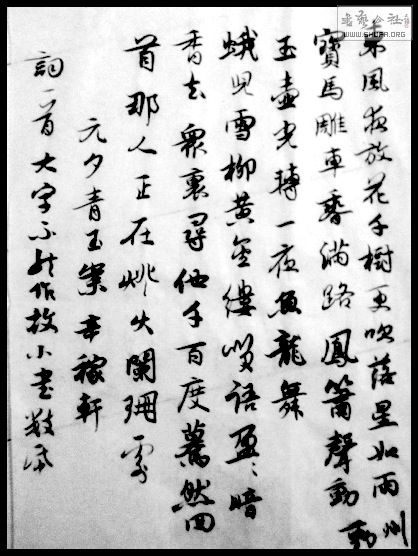 東風夜放花千樹更吹落星如雨
寶馬雕車香滿路鳳簫聲動
玉壺光轉一夜魚龍舞
蛾児雪柳黄金縷笑語盈〻暗
香去衆裏尋他千百度驀然回
首那人正在灯火闌珊處
元夕青玉案辛稼軒
詞一首大字不能作故小書
WWW.SHUFA.ORG